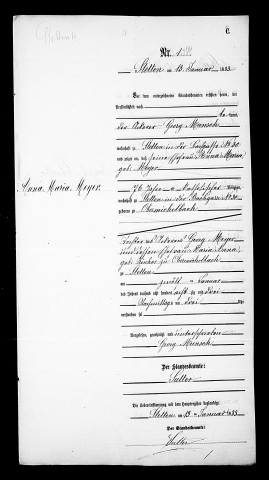 C.
Nr. 1
Stetten am 13. Januar 1883
Vor dem unterzeichneten Standesbeamten erschien heute, der
Persönlichkeit nach
kannt,
der Ackerer Georg Muensch
wohnhaft zu Stetten in der
und zeigte an, daß seine Ehefrau Anna Maria
geb. Meyer
Anna Maria Meyer.
76 Jahre alt, katholischer Religion,
wohnhaft zu Stetten in der
geboren zu Obermichelbach
Tochter des Ackerers Georg Meyer
und dessen Ehefrau Maria Anna
geb. zu Obermichelbach
zu Stetten
am zwölften Januar
des Jahres tausend acht hundert achtzig und drei
Vormittags um drei Uhr
verstorben sei.
Vorgelesen, genehmigt und unterschrieben
Georg Muensch
Der Standesbeamte:
Sutter
Die Uebereinstimmung mit dem Hauptregister beglaubigt
Stetten am 13ten Januar 1883
Der Standesbeamte:
Sutter